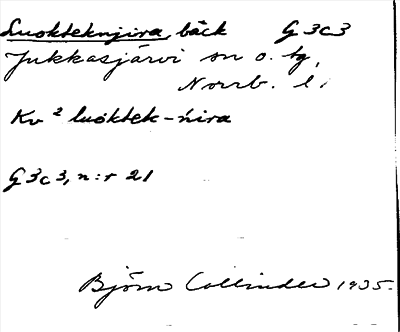 Luokteknjira, bäck G 3c3
Jukkasjärvi sn o. tg,
Norrb. l.
Kv² luoktek-ńira
G 3c3, n:r 21
Björn Collinder 1935.